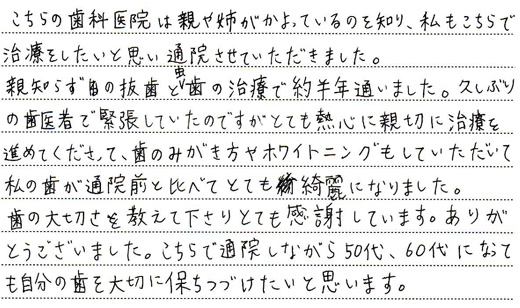 こちらの歯科医院は親や姉がかよっているのを知り、私もこちらで
治療をしたいと思い通院させていただきました。
親知らずの抜歯と虫歯の治療で約半年通いました。久しぶり
の歯医者で緊張していたのですがとても熱心に親切に治療を
進めてくださって、歯のみがき方やホワイトニングもしていただいて
私の歯が通院前と比べてとても綺麗になりました。
歯の大切さを教えて下さりとても感謝しています。ありが
とうございました。こちらで通院しながら50代、60代になって
も自分の歯を大切に保ちつづけたいと思います。